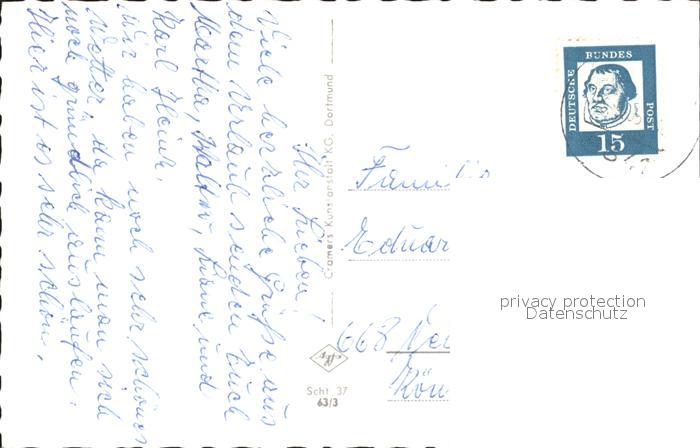 Ihr Lieben!
Viele herzliche Grüße aus
dem Urlaub senden Euch
Martha, Walter, und
Karl Heinz.
Wir haben noch sehr schönes
Wetter da kann man sich
noch gründlich auslaufen.
Hier ist es sehr schön.
Cramers Kunstanstalt KG. Dortmund
Scht 37
63/3
DEUTSCHE
BUNDES
POST
15
Famili
Eduar
668 Neu
Kön
privacy protection
Datenschutz